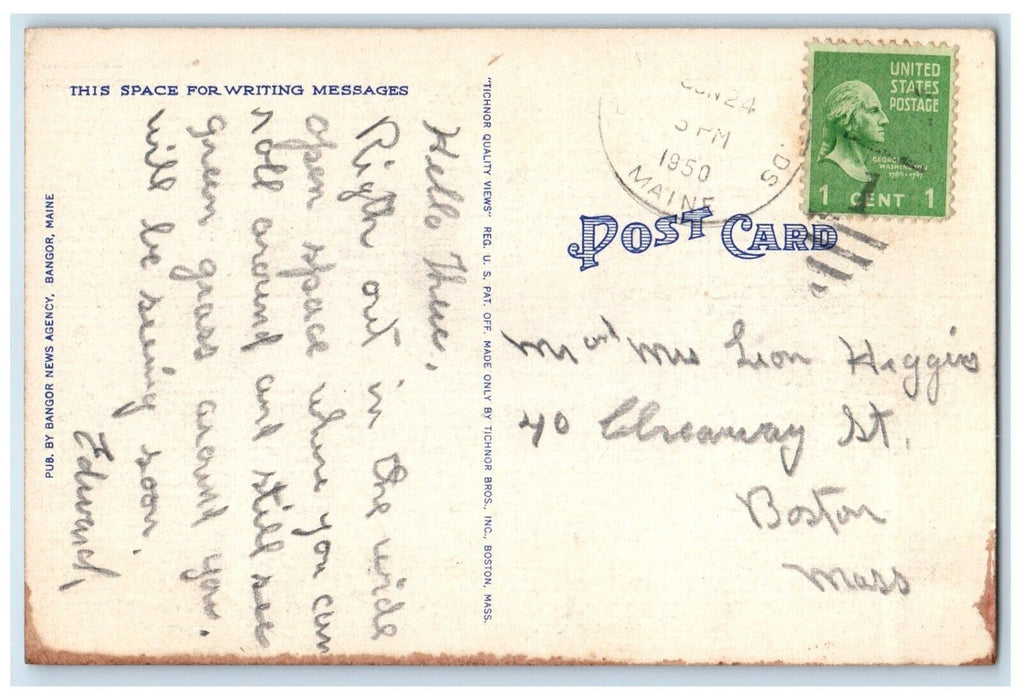 THIS SPACE FOR WRITING MESSAGES
Hello There,
Rigth out in the wide
open space where you can
roll around and still see
green grass around you.
will be seeing soon.
Edward,
PUB. BY BANGOR NEWS AGENCY, BANGOR, MAINE
"TICHNOR QUALITY VIEWS" REG. U. S. PAT. OFF. MADE ONLY BY TICHNOR BROS., INC., BOSTON, MASS.
JUN 24
PM
1950
MAINE
DS.
UNITED
STATES
POSTAGE
GEORGE
WASHINGTON
1789-1797
1 CENT 1
POST CARD
Mr and Mrs Leon Higgins
40 St.
Boston
Mass